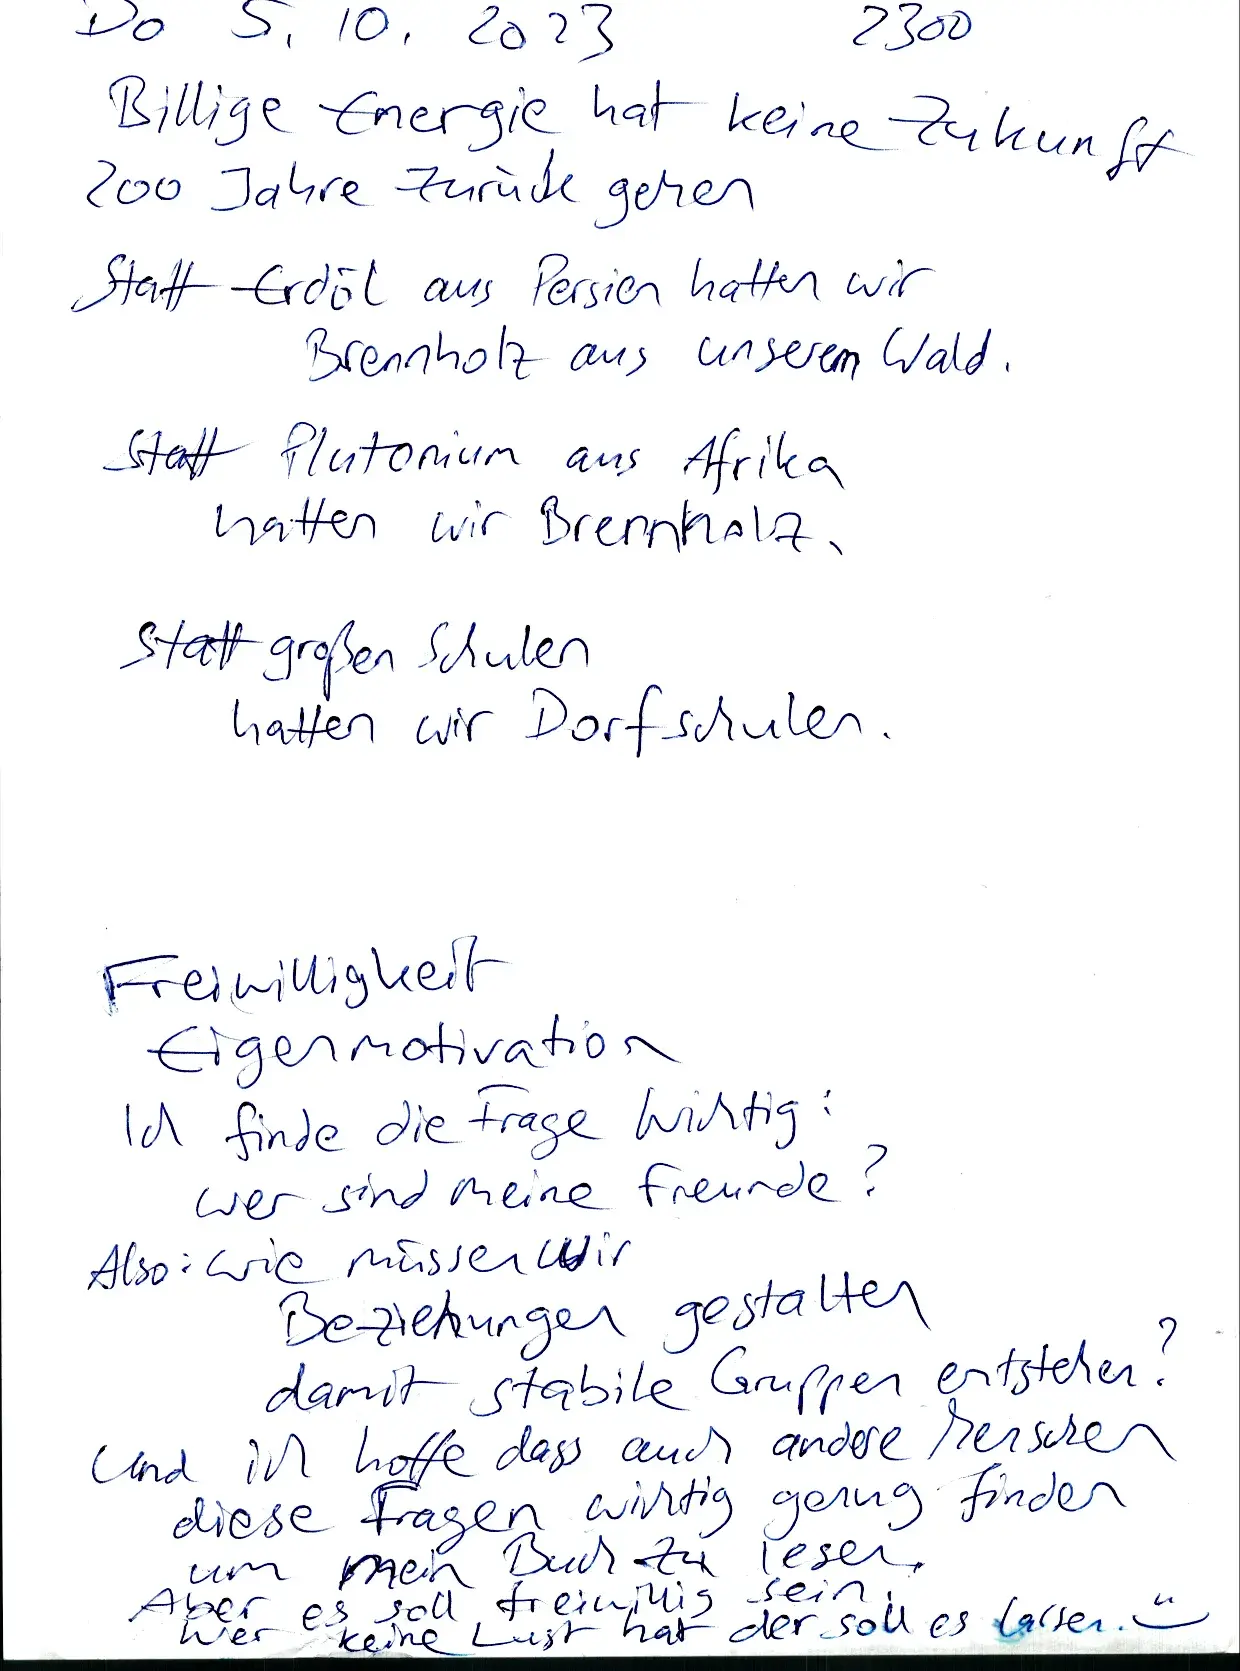 Do 5. 10. 2023 2300
Billige Energie hat keine Zukunft
200 Jahre zurück gehen
Statt Erdöl aus Persien hatten wir
Brennholz aus unserem Wald.
Statt Plutonium aus Afrika
hatten wir Brennholz.
Statt großen Schulen
hatten wir Dorfschulen.
Freiwilligkeit
Eigenmotivation
Ich finde die Frage wichtig:
wer sind meine Freunde?
Also: wie müssen wir
Beziehungen gestalten
damit stabile Gruppen entstehen?
Und ich hoffe dass auch andere Menschen
diese Fragen wichtig genug finden
um mein Buch zu lesen.
Aber es soll freiwillig sein.
Wer keine Lust hat der soll es lassen.